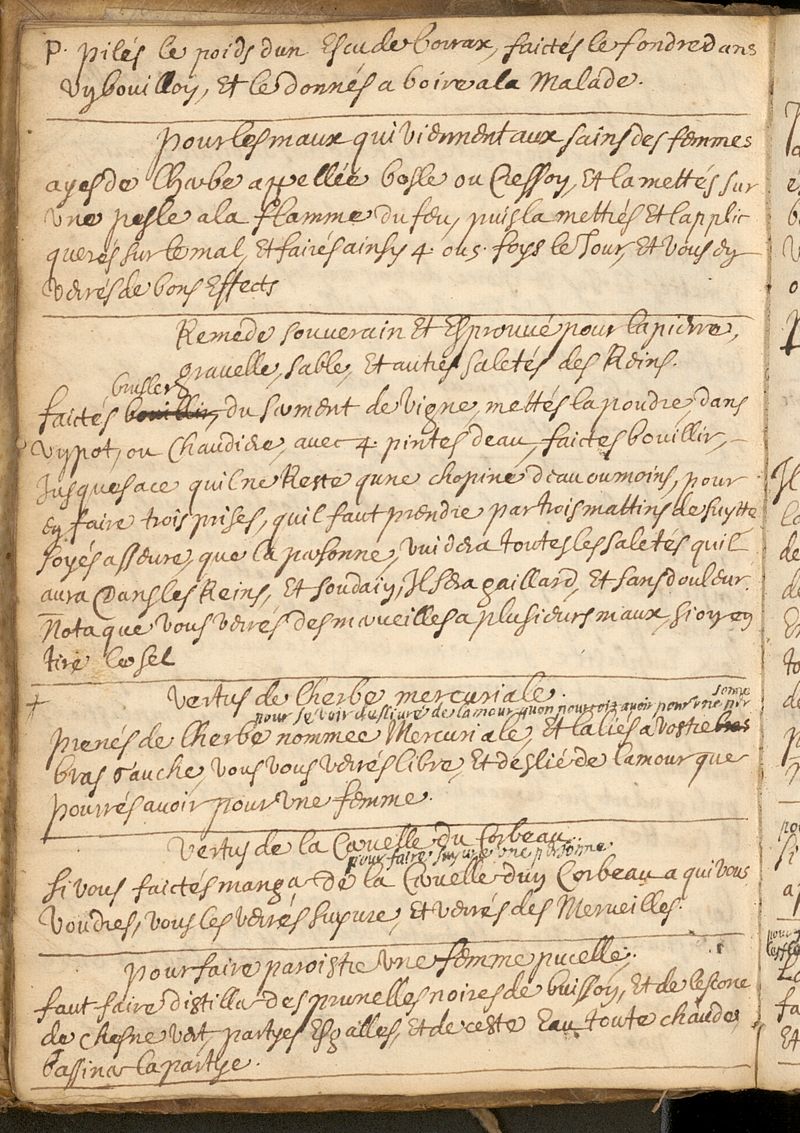 P. pilés le poids dun Escu de borrax, faictés le fondre dans
vy bouilloy, Et le donnés a boire a la Malade.
pour les maux qui viennent aux sains des femmes
ayes de Lherbe appellée bosle ou Cressoy, Et la mettés sur
vne pesle a la flamme du feu, puis la mettrés Et lapplic
querés sur le mal, et fairés ainsy 4. ou 5. foys le Jour, Et vous ey
verrés de bons Effects
Remede souverain Et Esprouvé pour la pierre,
gravelle, sable, Et autres saletés des Reins.
brusler
faictés bouillir, du sarment de vigne, mettés la poudre, dans
vy pot, ou Chaudiere, avec 4. pintes deau, faictes bouillir,
Jusques a ce quil ne Reste qune chopine deau ou moins, pour
ey faire trois prises, quil faut prendre par trois mattins de suytte
soyés asseure, que la personne, vuidera toutes les saletés quil
aura dans les Reins, Et soudaiy, Il sera gaillard, Et sans douleur.
Nota que vous verrés des merveilles a plusieurs maux, si oy ey
tire le sel
vertus de Lherbe mercuriale.
pour se voir deslivré de lamour quon pourroit avoir pour vne per
sonne
prenés de Lherbe nommée Mercuriale, Et la liés a vostre bras
bras gauche, vous vous verrés libre, Et deslié de lamour que
pourrés avoir pour vne femme.
vertus de la Cervelle du Corbeau.
pour faire supure vne personne
si vous faictés manger de la Cervelle duy Corbeau a qui vous
voudres, vous les verrés supure, et verrés des Merveilles.
pour faire paroistre vne femme pucelle.
faut faire distiller des prunelles noires de buissoy, Et de lescorce
de chesne vert, partyes Esgalles, et de ceste Eau toute chaude,
bassiner la partye.